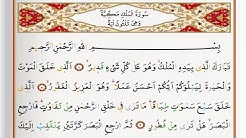 سُورَةُ الْمُلْكِ مَكِّيَّةٌ
وَهِيَ ثَلَاثُونَ آيَةً
بِسْمِ اللَّهِ الرَّحْمَٰنِ الرَّحِيمِ
تَبَارَكَ الَّذِي بِيَدِهِ الْمُلْكُ وَهُوَ عَلَىٰ كُلِّ شَيْءٍ قَدِيرٌ الَّذِي خَلَقَ الْمَوْتَ
وَالْحَيَاةَ لِيَبْلُوَكُمْ أَيُّكُمْ أَحْسَنُ عَمَلًا وَهُوَ الْعَزِيزُ الْغَفُورُ الَّذِي
خَلَقَ سَبْعَ سَمَوَاتٍ طِبَاقًا مَا تَرَىٰ فِي خَلْقِ الرَّحْمَٰنِ مِنْ تَفَاوُتٍ فَارْجِعِ
الْبَصَرَ هَلْ تَرَىٰ مِنْ فُطُورٍ ثُمَّ ارْجِعِ الْبَصَرَ كَرَّتَيْنِ يَنْقَلِبْ إِلَيْكَ